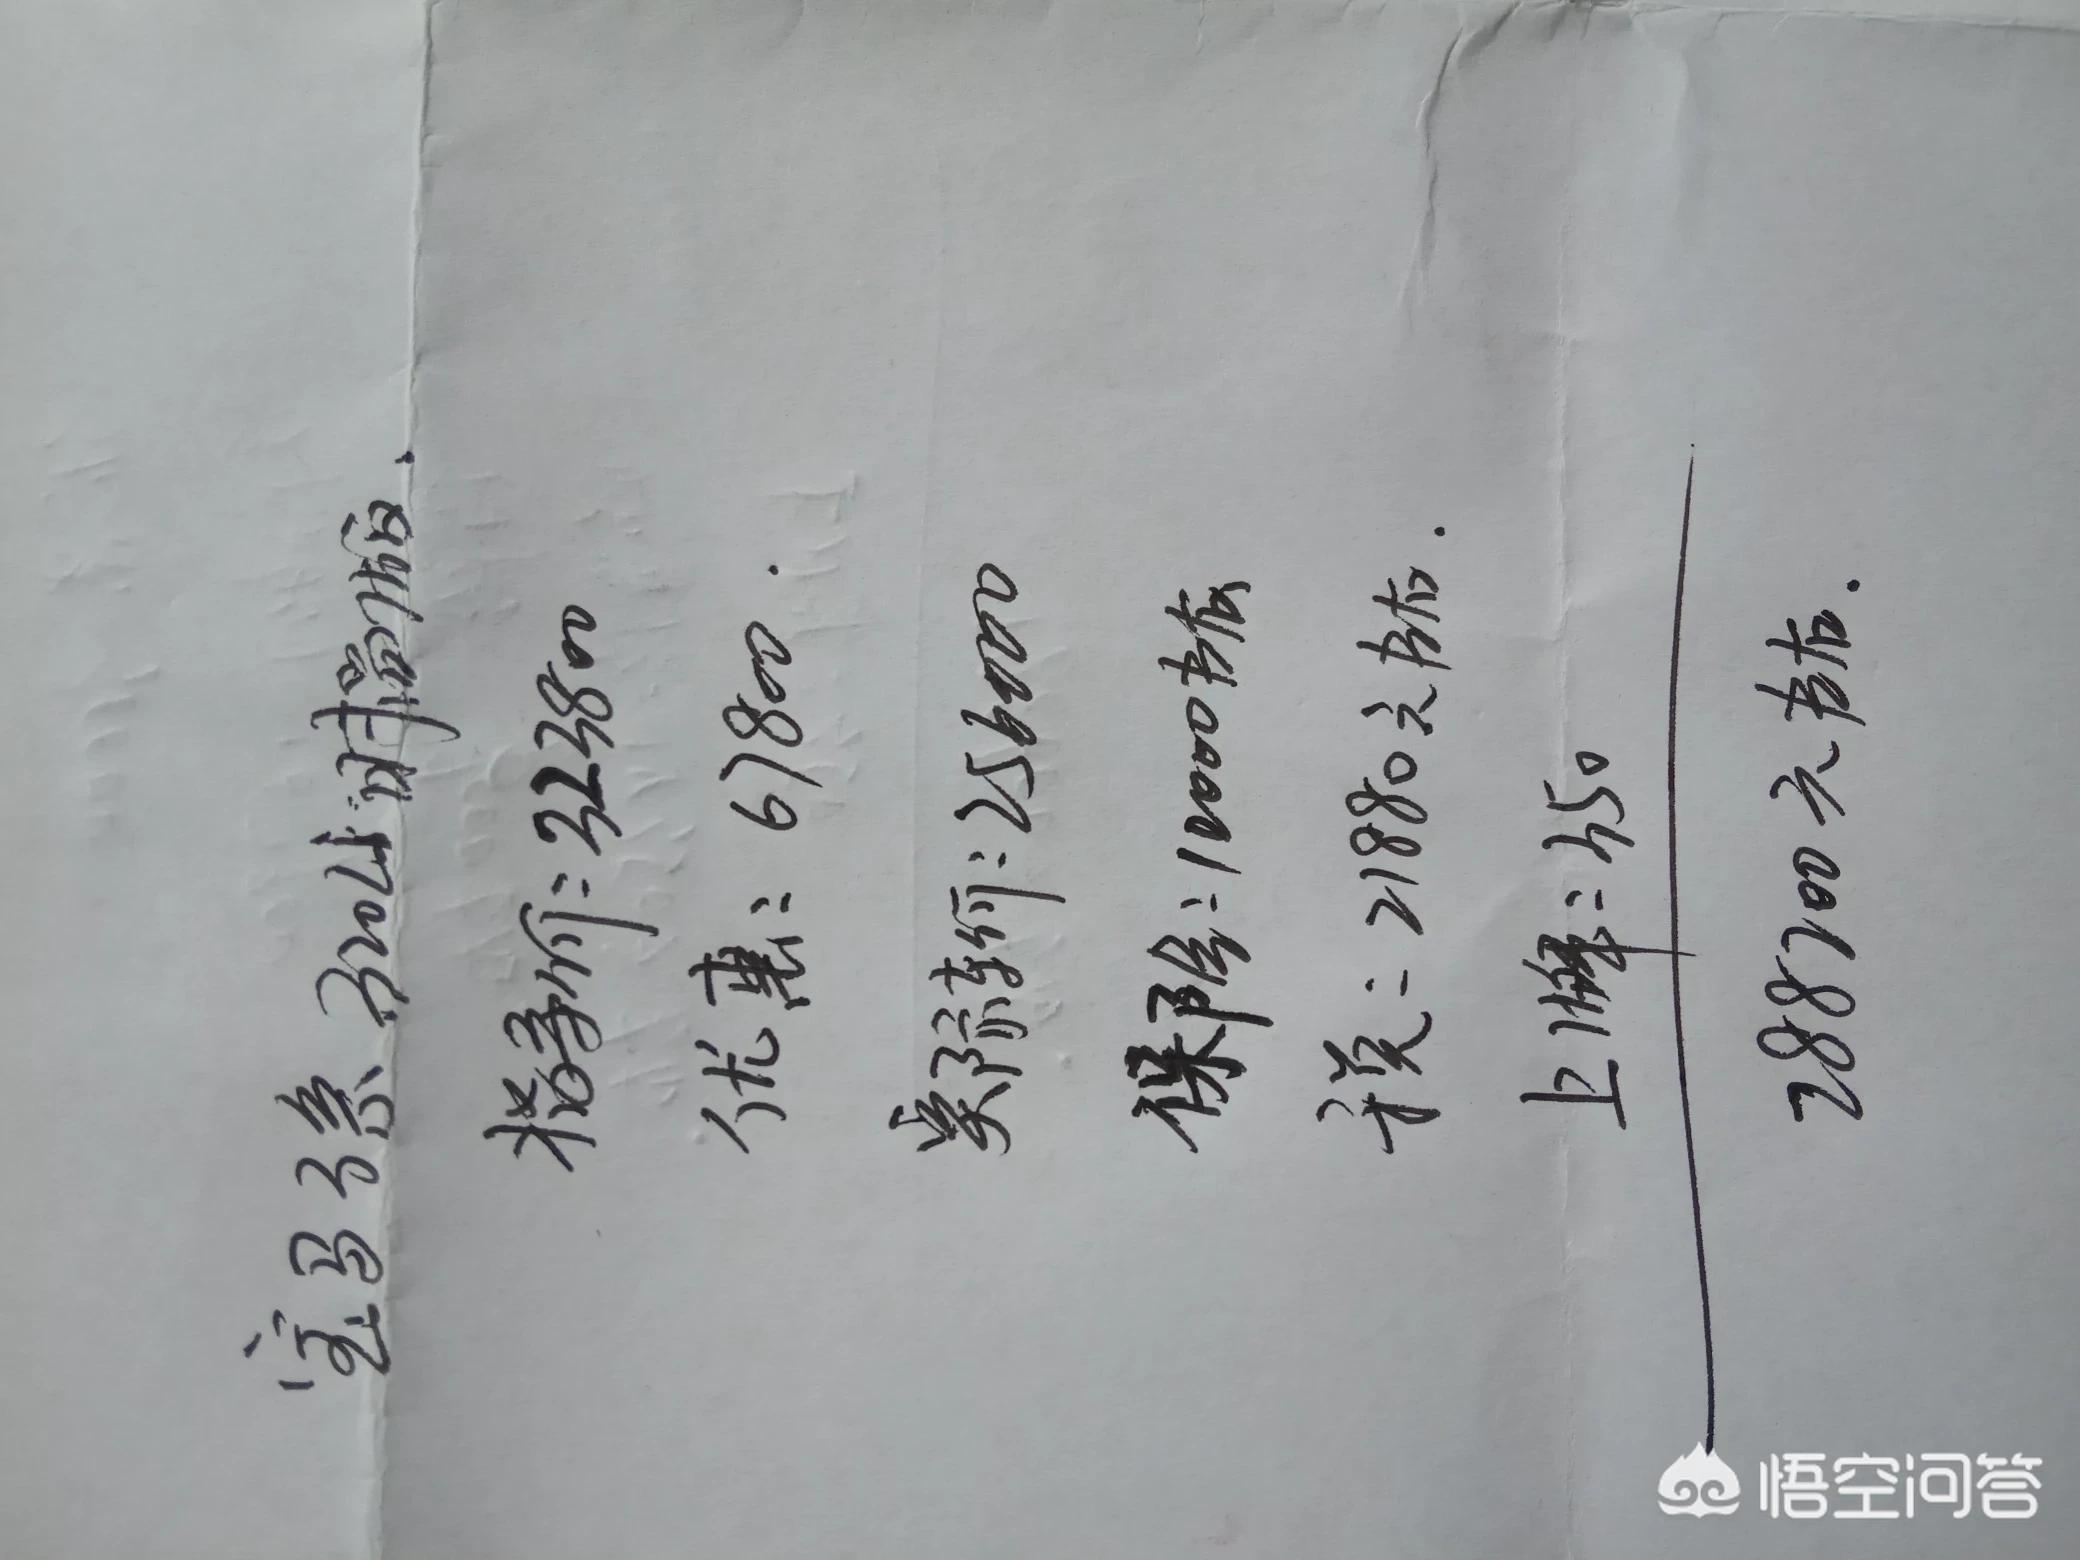 宝马3系 320Li 时尚版.
指导价:323800
优惠:67800.
实际车价:256000
保险:10000左右
税:21880元左右.
上牌:350
288200元左右.
悟空问答